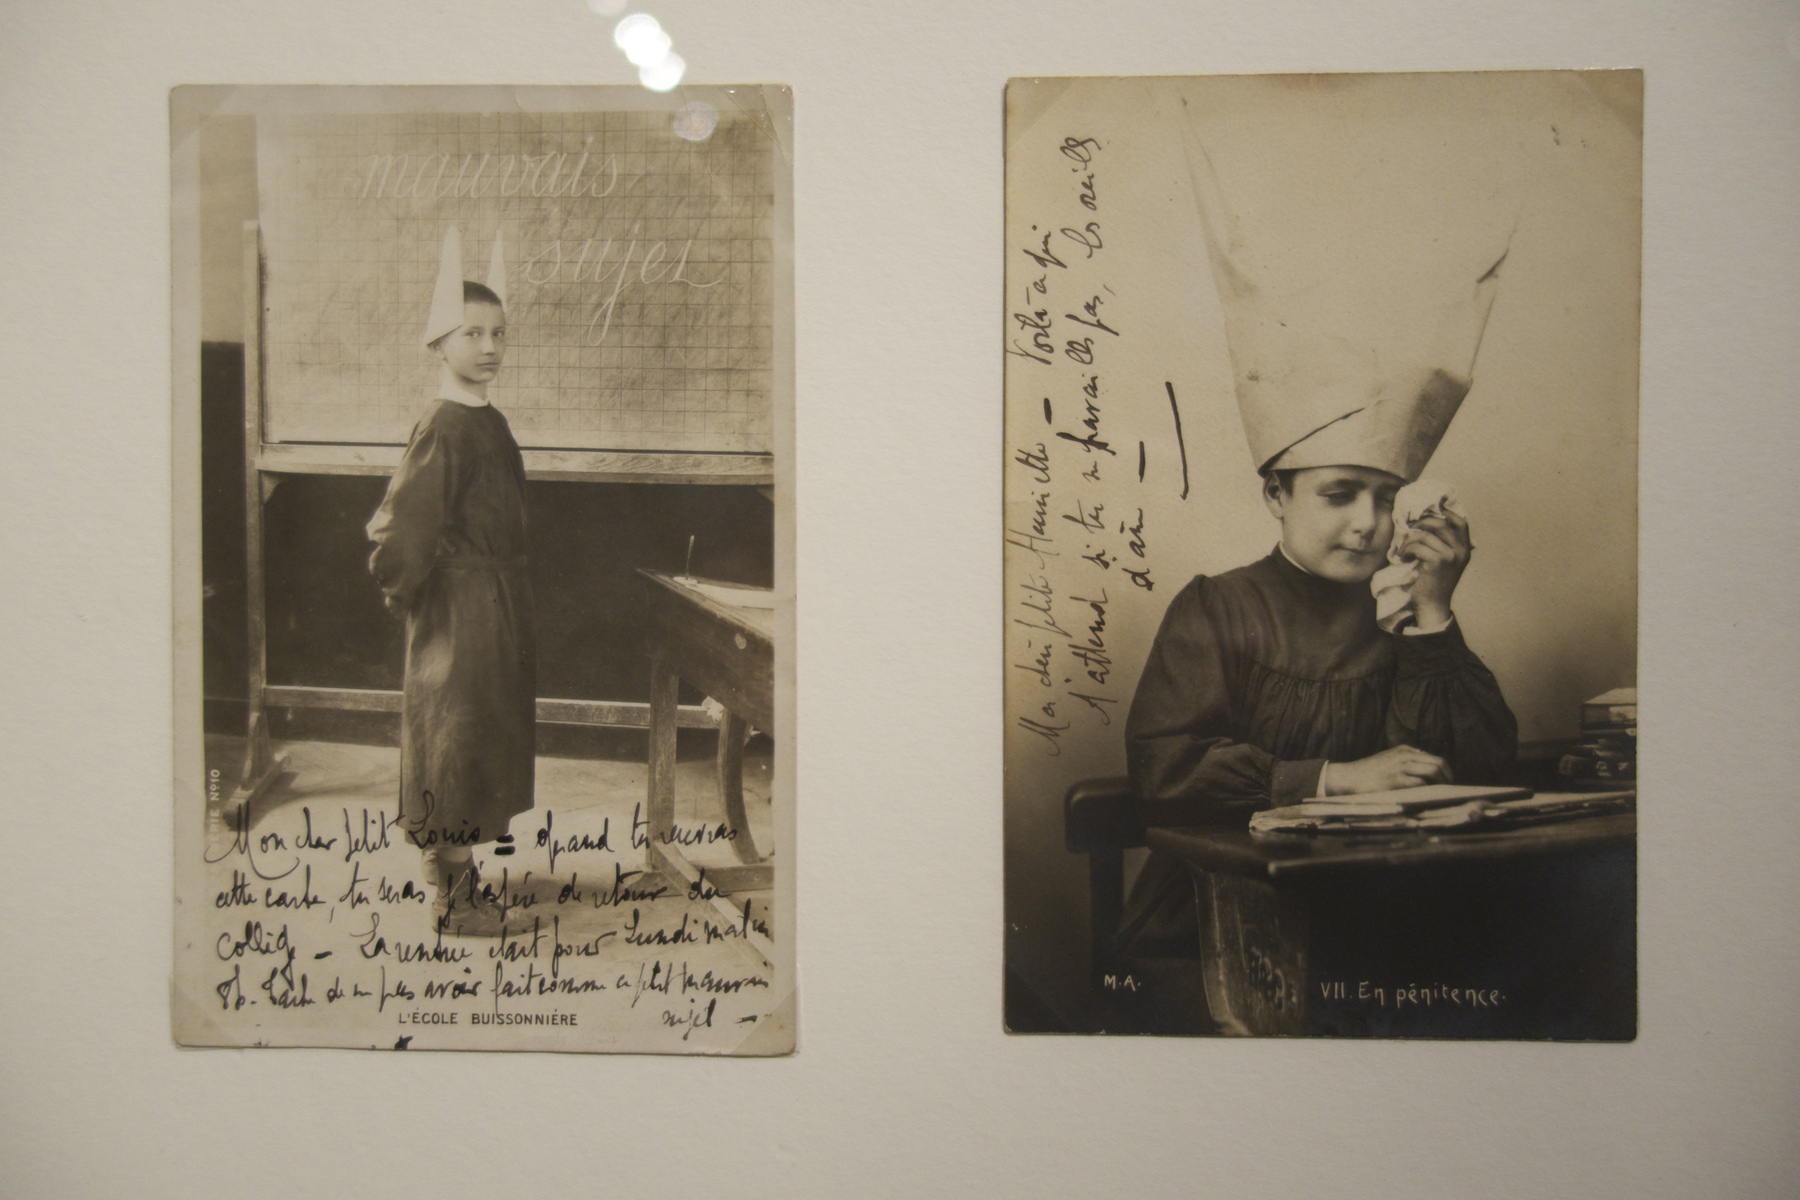 mauvais
sujet
SÉRIE Nº10
Mon cher petit Louis = quand tu recevras
cette carte, tu seras je l'espère de retour du
collège – La rentrée était pour Lundi matin
8h. Tache de ne pas avoir fait comme ce petit mauvais
sujet –
L'ÉCOLE BUISSONNIÉRE
Ma chère petite Henriette – Voilà ce qui
t'attend si tu ne travailles pas, les oreilles
d'âne –
M.A.
VII. En pénitence.